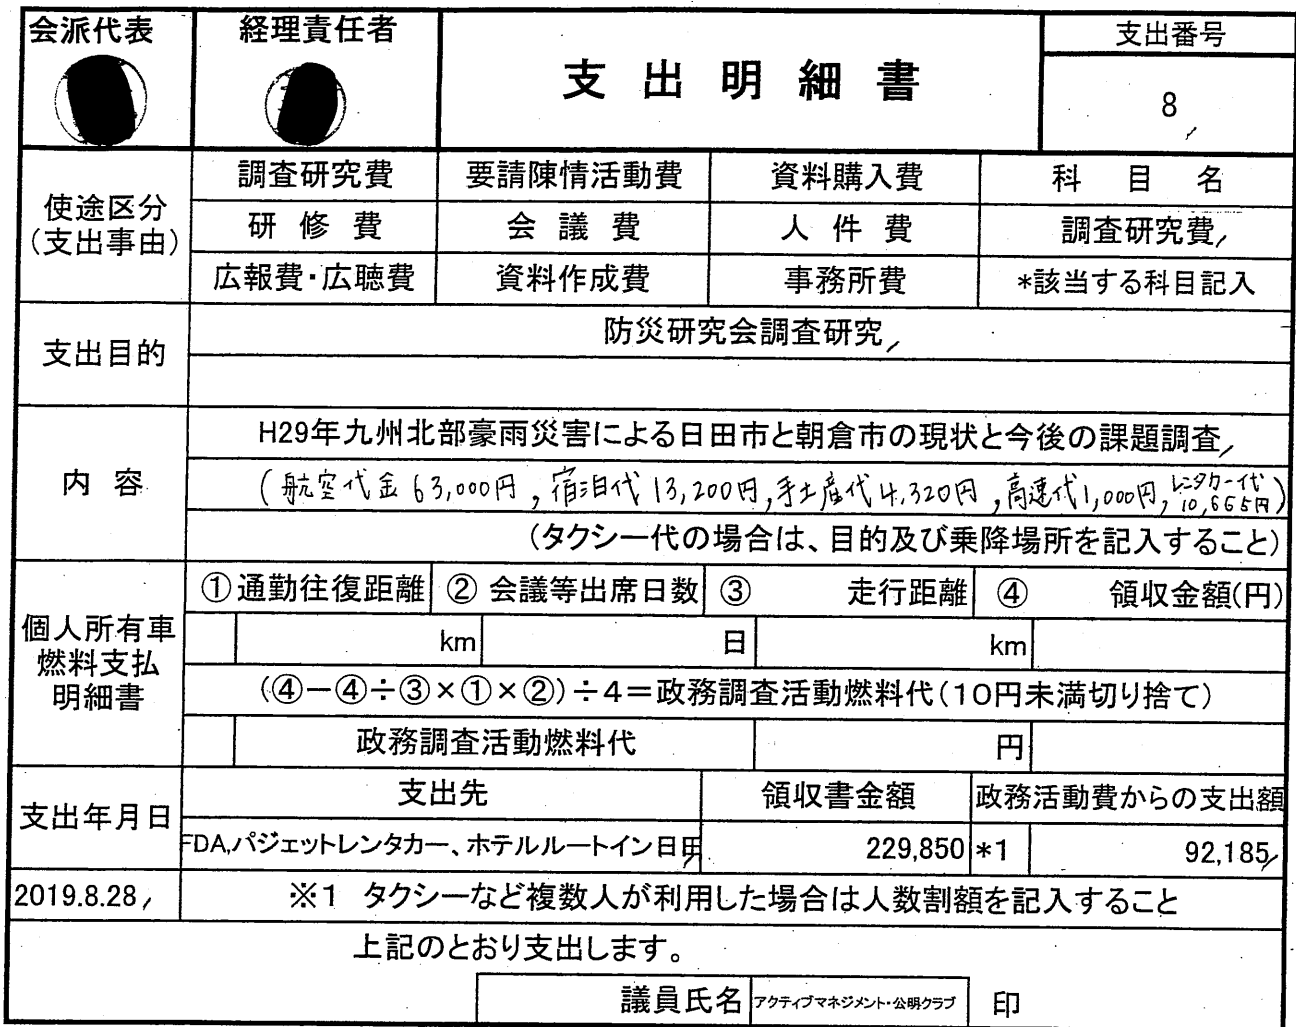 会派代表 経理責任者 支出明細書 支出番号
8
使途区分
(支出事由)
調査研究費 要請陳情活動費 資料購入費 科目名
研修費 会議費 人件費 調査研究費
広報費・広聴費 資料作成費 事務所費 *該当する科目記入
支出目的
防災研究会調査研究
内容
H29年九州北部豪雨災害による日田市と朝倉市の現状と今後の課題調査
(航空代金63,000円, 宿泊代13,200円, 手土産代4,320円, 高速代1,000円, レンタカー代10,665円)
(タクシー代の場合は、目的及び乗降場所を記入すること)
個人所有車
燃料支払
明細書
①通勤往復距離 ②会議等出席日数 ③走行距離 ④領収金額(円)
km 日 km
(④-④÷③×①×②)÷4=政務調査活動燃料代(10円未満切り捨て)
政務調査活動燃料代 円
支出年月日
支出先 領収書金額 政務活動費からの支出額
FDA,パジェットレンタカー、ホテルルートイン日田 229,850 *1 92,185
2019.8.28 ※1 タクシーなど複数人が利用した場合は人数割額を記入すること
上記のとおり支出します。
議員氏名 アクティブマネジメント・公明クラブ 印